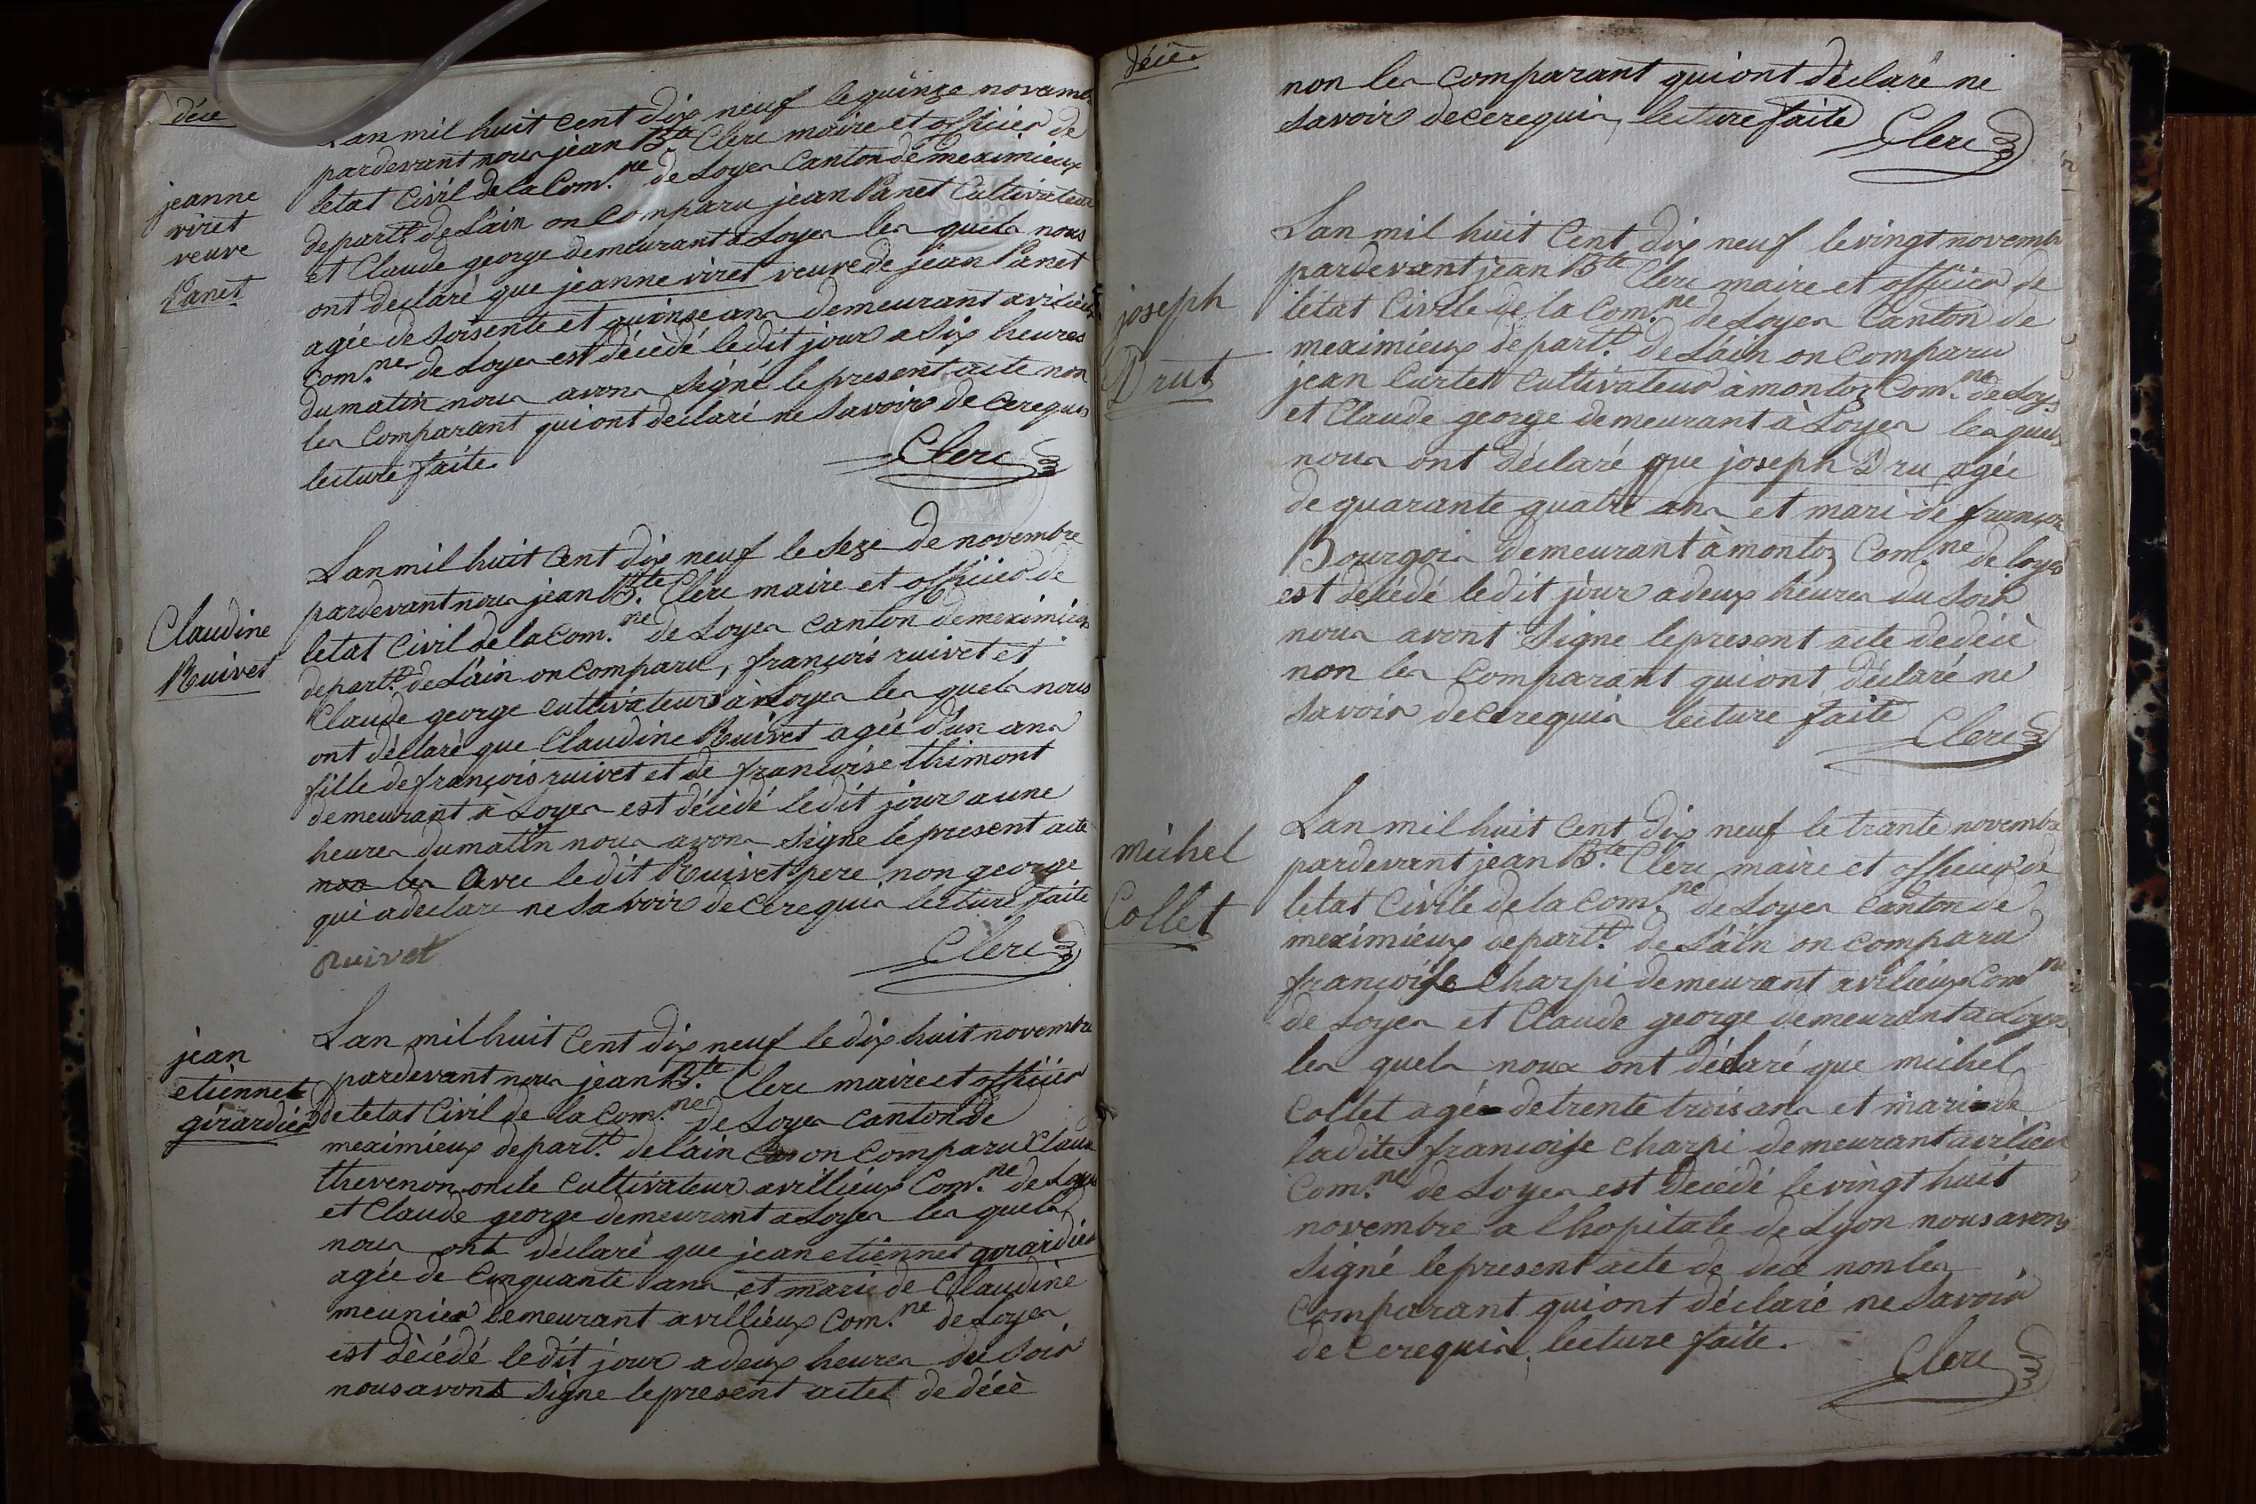 déce
jeanne
viret
veuve
Panet
Lan mil huit Cent dix neuf le quinze novem
pardevant nous jean Bte Clerc maire et officier de
letat Civil de la Com.ne de Loyes Canton de meximieux
départt. de Lain on Comparu jean Panet Cultivateur
et Claude george demeurant a Loyes les quels nous
ont déclaré que jeanne viret veuve de jean Panet
agée de soisente et quinse ans demeurant a vilieu
Com.ne de Loyes est décédé ledit jour a six heures
du matin nous avons signé le présent acte non
les Comparant qui ont déclaré ne savoir de ce requis
lecture faite
Clerc
Claudine
Ruivet
Lan mil huit Cent dix neuf le seze de novembre
pardevant nous jean Bte. Clerc maire et officier de
letat Civil de la Com.ne de Loyes canton de meximieux
départt. de Lain on comparu, françois ruivet et
Claude george cultivateurs à Loyes les quels nous
ont déclaré que Claudine Ruivet agée d'un ans
fille de françois ruivet et de francoise thimont
demeurant à Loyes est décédé ledit jour a une
heures du matin nous avons signe le present acte
non les avec ledit Ruivet pere non george
qui a déclaré ne savoir de ce requis lecture faite
Ruivet
Clerc
jean
etiennet
girardier
Lan mil huit Cent dix neuf le dix huit novembre
pardevant nous jean Bte. Clerc maire et officier
de letat Civil de la Com.ne de Loyes canton de
meximieux départt. de lain on comparu Claude
thevenon oncle cultivateur a villieux Com.ne de Loyes
et Claude george demeurant a Loyes les quels
nous ont déclaré que jean etiennet girardier
agée de Cinquante ans et mari de Claudine
meunier demeurant a villieux Com.ne de Loyes
est dècédé ledit jour a deux heures du soir
nous avons signe le present acte de décè
décès
non les Comparant qui ont déclaré ne
savoir de ce requis, lecture faite
Clerc
joseph
Drut
Lan mil huit Cent dix neuf le vingt novembre
pardevant jean Bte Clerc maire et officier de
létat Civile de la Com.ne de Loyes Canton de
meximieux départt. de Lain on Comparu
jean Curtet Cultivateur à montoz Com.ne de Loyes
et Claude george demeurant à Loyes les quels
nous ont déclaré que joseph Dru agée
de quarante quatre ans et mari de françoise
Bourgois demeurant à montoz Com.ne de loyes
est décédé ledit jour a deux heures du soir
nous avont signe le present acte de décè
non les Comparant qui ont déclaré ne
savoir de ce requis lecture faite
Clerc
michel
Collet
Lan mil huit Cent dix neuf le trante novembre
pardevant jean Bte. Clerc maire et officier de
letat Civile de la Com.ne de Loyes Canton de
meximieux départt. de Lain on compara
francoise Charpi demeurant a vilieux Com ne
de Loyes et Claude george demeurant a Loyes
les quels nous ont déclaré que michel
Collet agée de trente trois ans et mari de
ladite francoise Charpi demeurant a vilieu
Com.ne de Loyes est décédé le vingt huit
novembre a lhopitale de Lyon nous avons
signé le present acte de décé non les
comparant qui ont déclaré ne savoir
de ce requis, lecture faite.
Clerc